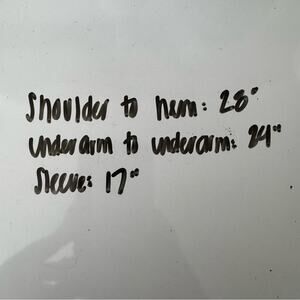 Shoulder to hem: 28"
underarm to underarm: 24"
Sleeve: 17"